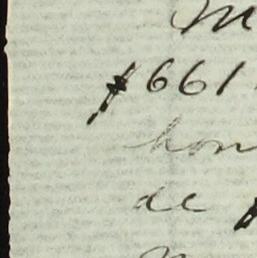 M
$661
hon
de